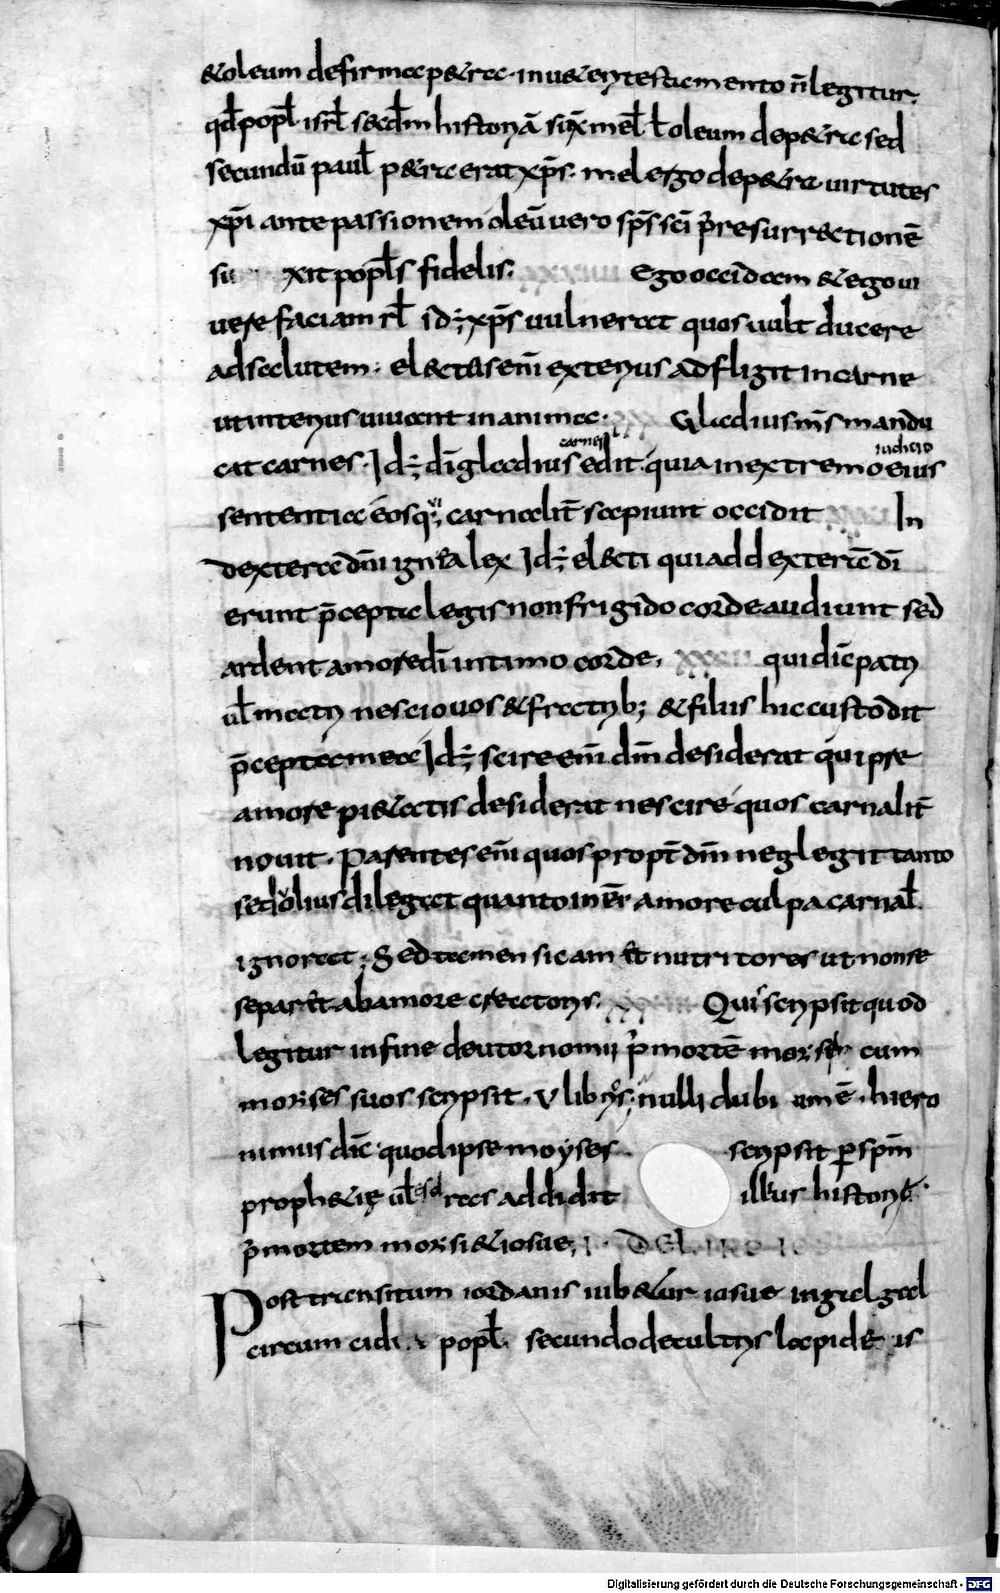 &oleum defirma p&ra. inu&eri testamento n̄ legitur.
qđ popl̄. isrl̄ s&cđm historiā sux̄ mel̄ ł oleum dep&ra sed
secundū paul̄ p&ra erat xp̄s. mel ergo dep&ra uirtutes
xp̄i ante passionem oleū uero sp̄s sc̄i p̄ resurr&tionē
su xit popl̄s fidelis. Ego occidam & ego ui
uere faciam rl̄ id; xp̄s uulnerat quos uult ducere
ad salutem. el&tus em̄ exterius adfligit in carne
ut interius uiuant in anima. Gladius m̄s mandu
cat carnes. Id; dī gladius carnes edit quia in extremo iudicio eius
sententia eos qui carnalit̄ sapiunt occidit In
dextera dn̄i ignea lex Id; el&ti qui ad dexterā dī
erunt p̄cepta legis non frigido corde audiunt sed
ardent amore dī intimo corde. xxx qui dic̄ patri
ul̄ matri nescio uos & fratrib; & filius hic custodit
p̄cepta mea Id; scire em̄ dm̄ desiderat qui pre
amore pi&atis desiderat nescire quos carnalit̄
nouit. Parentes em̄ quos propt̄ dm̄ neglegit tanto
sedolius dilegat quanto in eīs amore culpa carnal̄
ignorat. Sed tamen sic am̄t nutritores ut non se
separ&t ab amore creatoris. Qui scripsit quod
legitur in fine deutoronomii p̄ mortē moysen cum
moises suos scripsit. V libros; nulli dubi amē. hiero
nimus dic̄ quod ipse moyses. scripsit p spm̄
proph&ię ul̄ esdras addidit illius historię.
p̄ mortem moisi & iosue. DE LIBRO IO
Post transitum iordanis iub&ur iosue in galgal
circumcidi popl̄. secundo de cultris lapide is